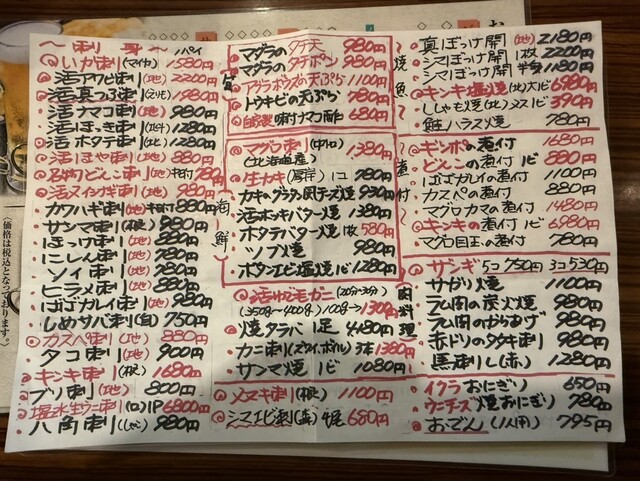 〜刺身〜
◎いか刺(マイカ) 1パイ 1580円
◎活アワビ刺(地) 2200円
◎活真つぶ刺(エリモ) 1980円
◎活ナマコ刺(地) 980円
◎活ほっき刺(地) 1280円
◎活ホタテ刺(地) 1280円
◎活ほや刺(地) 880円
◎名物どんこ刺(地)肝付 780円
◎活ヌイメガジ刺(地) 980円
・カワハギ刺(地)肝付 880円
・サンマ刺(根) 980円
・ほっけ刺(地) 880円
・にしん刺(地) 780円
・ソイ刺(地) 780円
・ヒラメ刺(地) 880円
・ババガレイ刺(地) 980円
・しめサバ刺(自) 750円
◎カスベ刺(地) 880円
・タコ刺(地) 900円
◎キンキ刺(根) 1680円
・ブリ刺(地) 800円
◎塩水生ウニ刺(ロ)1P 6800円
・八角刺 980円
・マグラのタチ天 980円
・マグラのタチポン 980円
・アブラボウズの天ぷら 1100円
・トウキビの天ぷら 780円
◎自家製 味付ナマコ酢 680円
海鮮
◎マグロ刺(中トロ) 1380円
(北海道産)
◎生カキ(厚岸) 1コ 780円
・カキのグラタン風チーズ焼 930円
・活ホッキバター焼 1380円
・ホタテバター焼 1枚 580円
・ツブ焼 980円
・ボタンエビ塩焼 1ビ 1280円
◎活ゆで毛ガニ(20分〜30分)
(350g〜400g) 100g→1300円
・焼タラバ 1足 4180円
・カニ刺(ズワイ、ボイル) 3本 1380円
・サンマ焼 1ビ 1080円
◎メヌキ刺(根) 1100円
◎シマエビ刺 4尾 680円
焼魚
・真ほっけ開(地) 2180円
・シマほっけ開 1枚 2200円
・シマほっけ開 半身 1180円
◎キンキ塩焼(地)大1ビ 6980円
・ししゃも焼(地)メス1ビ 390円
・鮭ハラス焼 780円
煮付
◎ギンポの煮付 1680円
◎どんこの煮付 1ビ 880円
・ババガレイの煮付 1100円
・カスベの煮付 880円
・マグロカマの煮付 1480円
◎キンキの煮付 1ビ 6980円
・マグロ目玉の煮付 780円
肉料理
◎ザンギ 5コ750円 3コ530円
・サガリ焼 1100円
・ラム肉の炭火焼 980円
・ラム肉のからあげ 980円
・赤ドリのタタキ刺 980円
・馬刺し(赤) 1280円
・イクラおにぎり 650円
・ウニチーズ焼おにぎり 780円
◎おでん(1人用) 795円
(価格は税込となっております。)